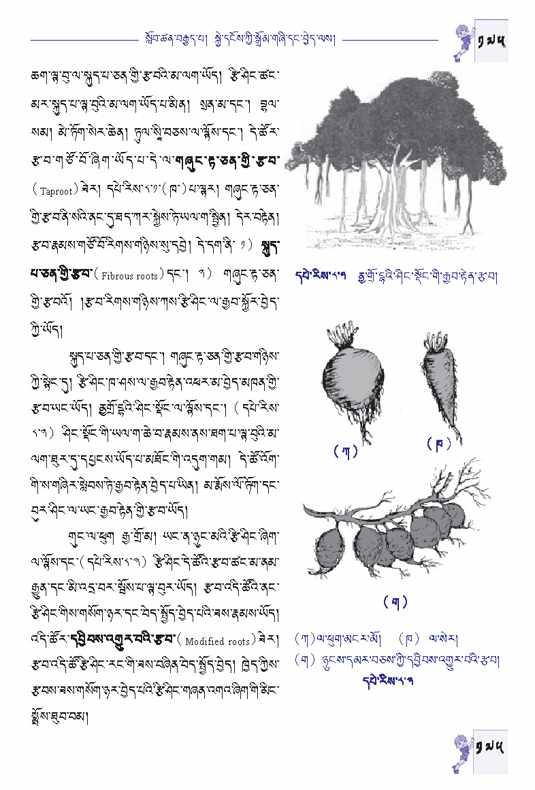 སློབ་ཚན་བརྒྱད་པ། སྐྱེ་དངོས་ཀྱི་སྒྲོམ་གཞི་དང་བྱེད་ལས།
༡༨༥
ཆག་ལྟ་བུ་ལ་སྐུད་པ་ཅན་གྱི་རྩ་བའི་མ་ལག་ཡོད། རྩི་ཤིང་ཚང་
མར་སྐུད་པ་ལྟ་བུའི་མ་ལག་ཡོད་པ་མིན། སྲན་མ་དང་།
སམ། མེ་ཏོག་སེར་ཆེན། དུལ་སི་བཅས་ལ་ལྟོས་དང་། དེ་ཚོར་
རྩ་བ་གཙོ་བོ་ཞིག་ཡོད་པ་དེ་ལ་གཞུང་རྟ་ཅན་གྱི་རྩ་བ་
( Taproot ) ཟེར། དཔེ་རིས་༨་༡་(ཁ་) པ་ལྟར། གཞུང་རྟ་ཅན་
གྱི་རྩ་བ་ནི་སའི་ནང་དུ་ཟད་ཀར་སྐྱེས་ཏེ་ཡལ་ག་སྤྲིན། དེར་བརྟེན།
རྩ་བ་རྣམས་གཙོ་བོ་རིགས་གཉིས་སུ་དབྱེ། དེ་དག་ནི་ ༡) སྐུད་
པ་ཅན་གྱི་རྩ་བ་ ( Fibrous roots ) དང་། ༢) གཞུང་རྟ་ཅན་
གྱི་རྩ་བའོ། །རྩ་བ་རིགས་གཉིས་ཀས་རྩི་ཤིང་ལ་རྒྱབ་སྐྱོར་བྱེད་
ཀྱི་ཡོད།
སྐུད་པ་ཅན་གྱི་རྩ་བ་དང་། གཞུང་རྟ་ཅན་གྱི་རྩ་བ་གཉིས་
ཀྱི་སྟེང་དུ། རྩི་ཤིང་ཁ་ཤས་ལ་རྒྱབ་རྟེན་འཕར་མ་བྱེད་མཁན་གྱི་
རྩ་བ་ཡང་ཡོད། ནྱ་གྲོ་དྷའི་ཤིང་སྡོང་ལ་ལྟོས་དང་། ( དཔེ་རིས་
༨་༢) ཤིང་སྡོང་གི་ཡལ་ག་ཆེ་བ་རྣམས་ནས་ཐག་པ་ལྟ་བུའི་མ་
ལག་ཐུར་དུ་དཔྱངས་ཡོད་པ་མཐོང་གི་འདུག་གམ། དེ་ཚོ་འོག་
གི་ས་གཞིར་སླེབས་ཏེ་རྒྱབ་རྟེན་བྱེད་པ་ཡིན། མ་རྨོས་ལོ་ཏོག་དང་
བུར་ཤིང་ལ་ཡང་རྒྱབ་རྟེན་གྱི་རྩ་བ་ཡོད།
གུང་ལ་ཕུག རྒྱ་གྲོ་མ། ཡང་ན་ཉུང་མའི་རྩི་ཤིང་ཞིག་
ལ་ལྟོས་དང་ ( དཔེ་རིས་༨་༣) རྩི་ཤིང་དེ་ཚོའི་རྩ་བ་ཚང་མ་ནམ་
རྒྱུན་དང་མི་འདྲ་བར་སྦོས་པ་ལྟ་བུར་ཡོད། རྩ་བ་འདི་ཚོའི་ནང་
རྩི་ཤིང་གིས་གསོག་ཉར་དང་བེད་སྤྱོད་བྱེད་པའི་ཟས་རྣམས་ཡོད།
འདི་ཚོར་དབྱིབས་འགྱུར་བའི་རྩ་བ་ ( Modified roots ) ཟེར།
རྩ་བ་འདི་ཚོ་རྩི་ཤིང་རང་གི་ཟས་བཞིན་བེད་སྤྱོད་བྱེད། ཁྱེད་ཀྱིས་
རྩ་བས་ཟས་གསོག་ཉར་བྱེད་པའི་རྩི་ཤིང་གཞན་འགའ་ཞིག་གི་མིང་
སྨྲོས་ཐུབ་བམ།
དཔེ་རིས་༨་༢ ནྱ་གྲོ་དྷའི་ཤིང་སྡོང་གི་རྒྱབ་རྟེན་རྩ་བ།
(ཀ)
(ཁ)
(ག)
(ཀ) ལ་ཕུག་མངར་མོ། (ཁ) ལ་སེར།
(ག) ཉུང་ས་དམར་བཅས་ཀྱི་དབྱིབས་འགྱུར་བའི་རྩ་བ།
དཔེ་རིས་༨་༣
༡༨༥